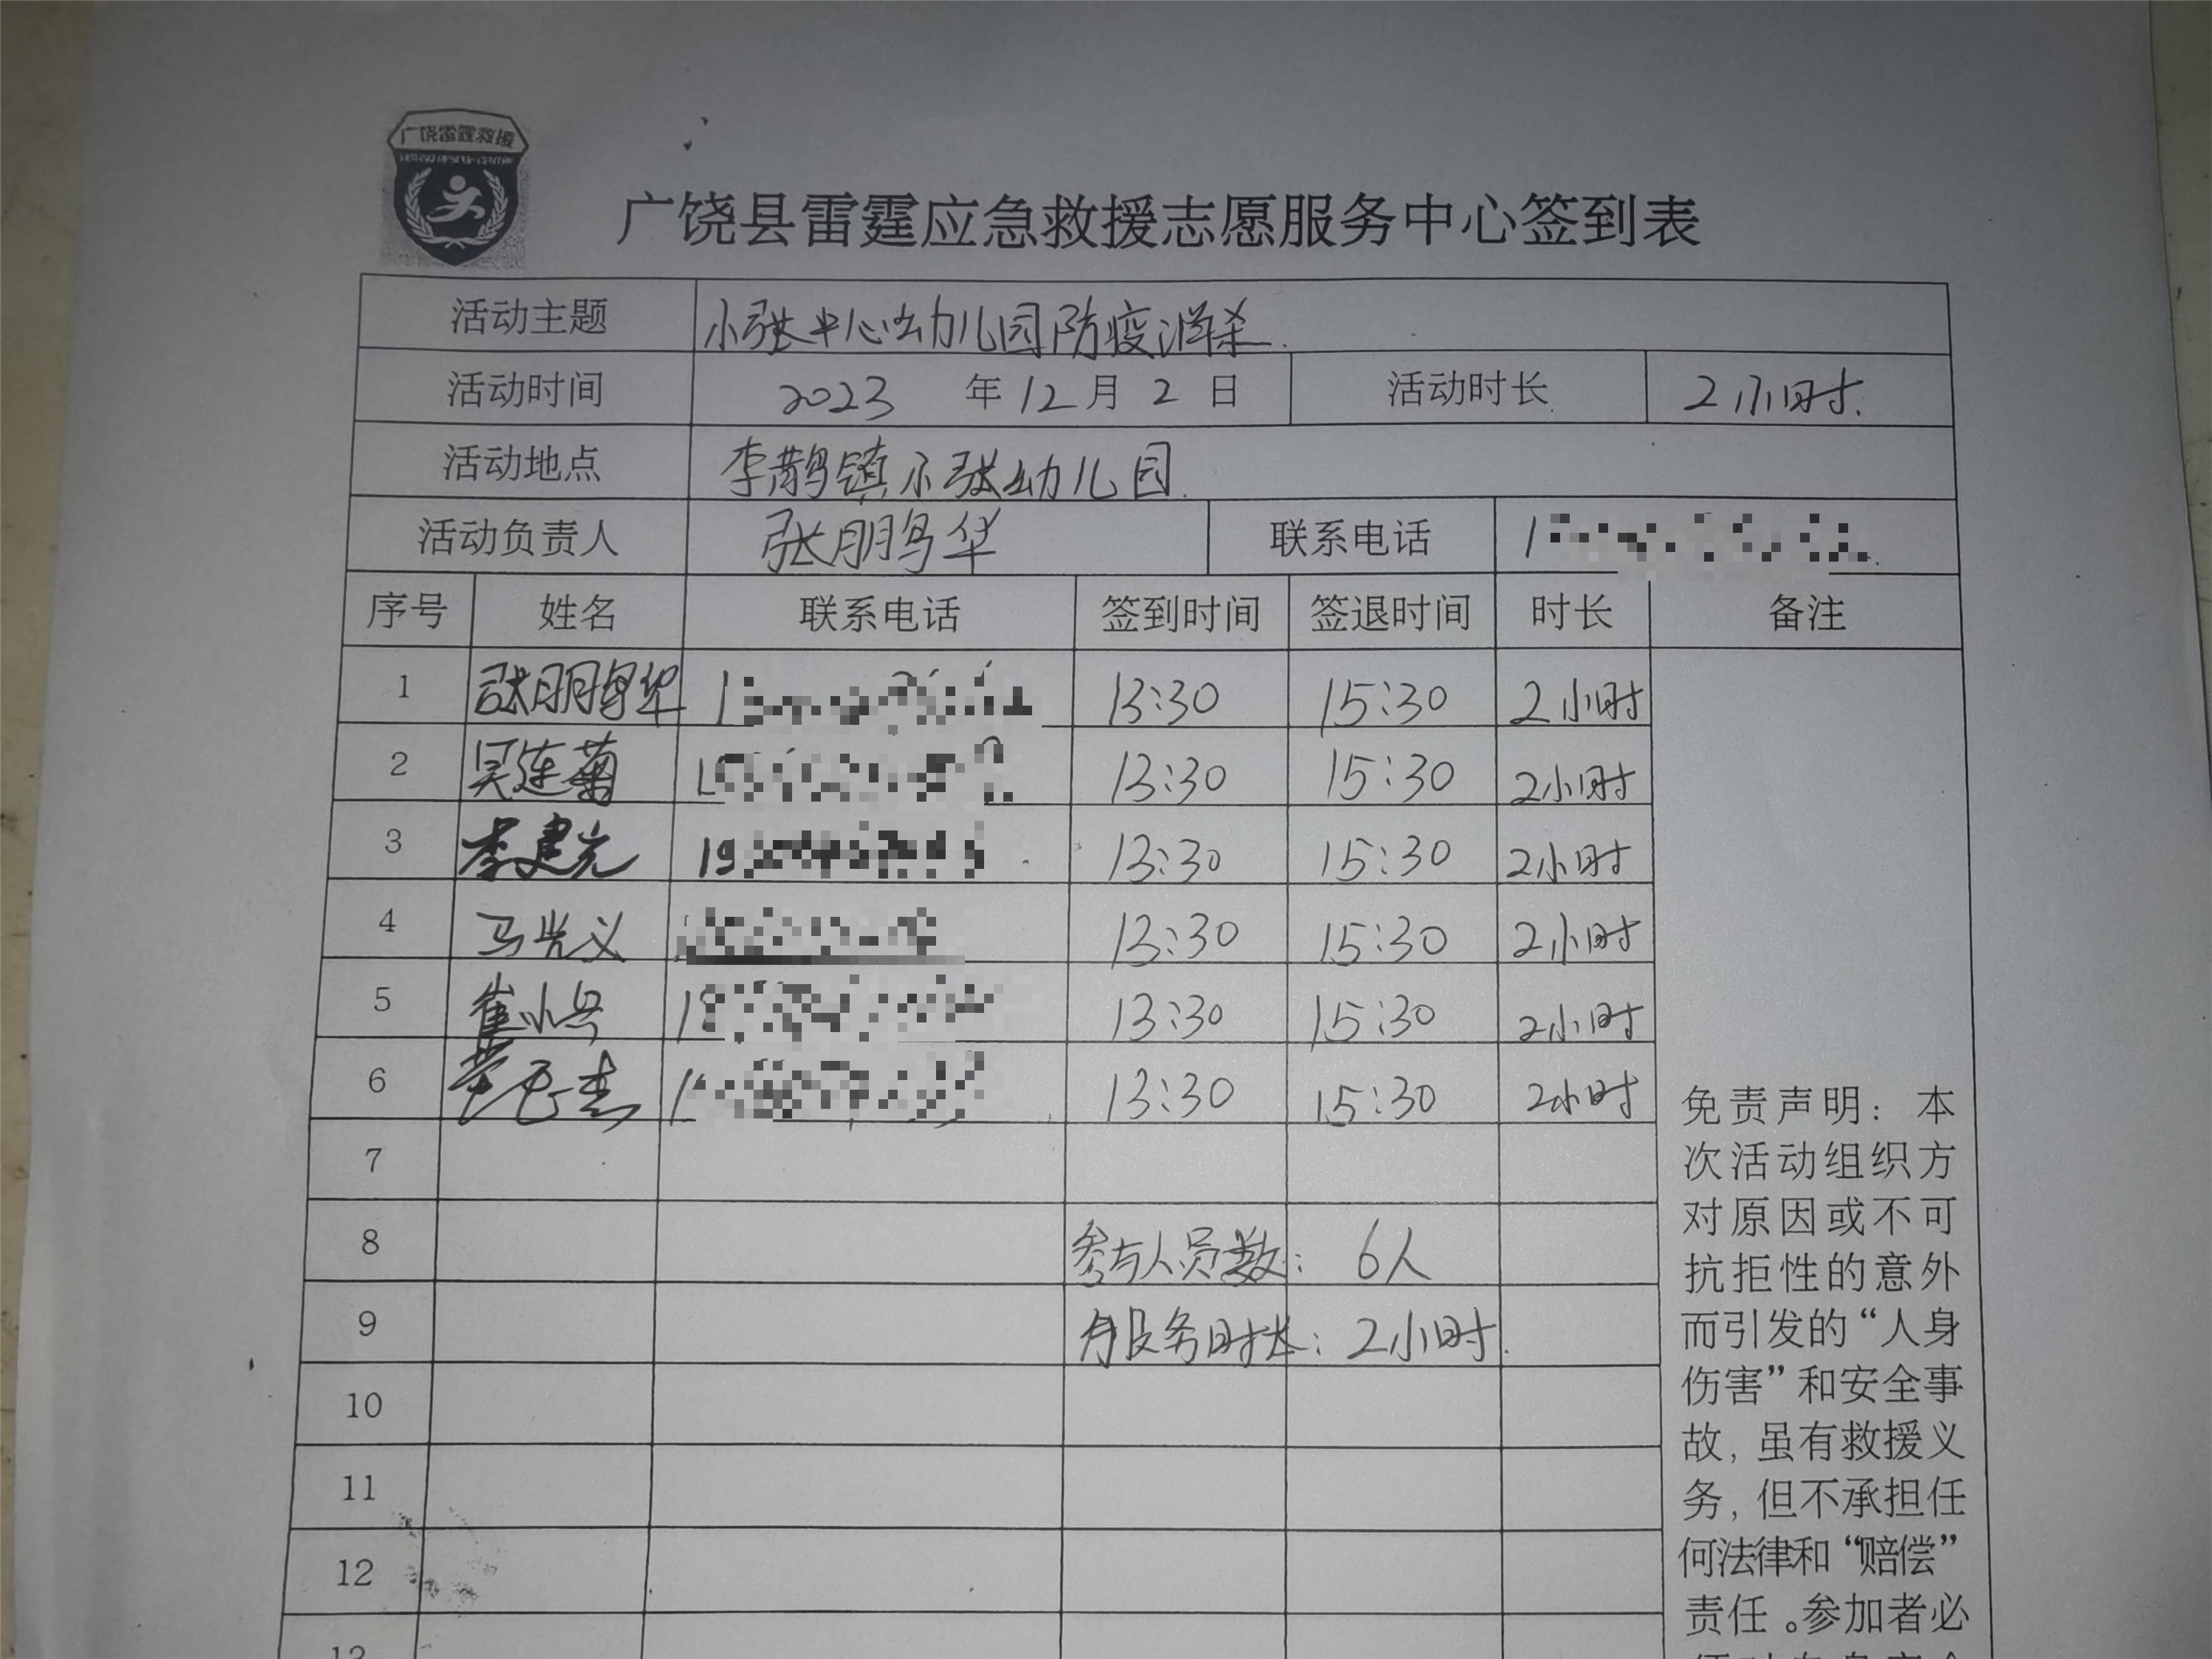 广饶雷霆救援
广饶县雷霆应急救援志愿服务中心签到表
活动主题 小张中心幼儿园防疫消杀.
活动时间 2023 年 12 月 2 日 活动时长 2小时.
活动地点 李鹊镇小张幼儿园.
活动负责人 张鹏华 联系电话 1
序号 姓名 联系电话 签到时间 签退时间 时长 备注
1 张鹏华 1 13:30 15:30 2小时
2 吴连菊 1 13:30 15:30 2小时
3 李建光 19 13:30 15:30 2小时
4 马光义 13:30 15:30 2小时
5 崔小兵 1 13:30 15:30 2小时
6 1 13:30 15:30 2小时
7
8 参与人员数: 6人
9 服务时长: 2小时.
10
11
12
13
免责声明：本
次活动组织方
对原因或不可
抗拒性的意外
而引发的“人身
伤害”和安全事
故，虽有救援义
务，但不承担任
何法律和“赔偿”
责任。参加者必